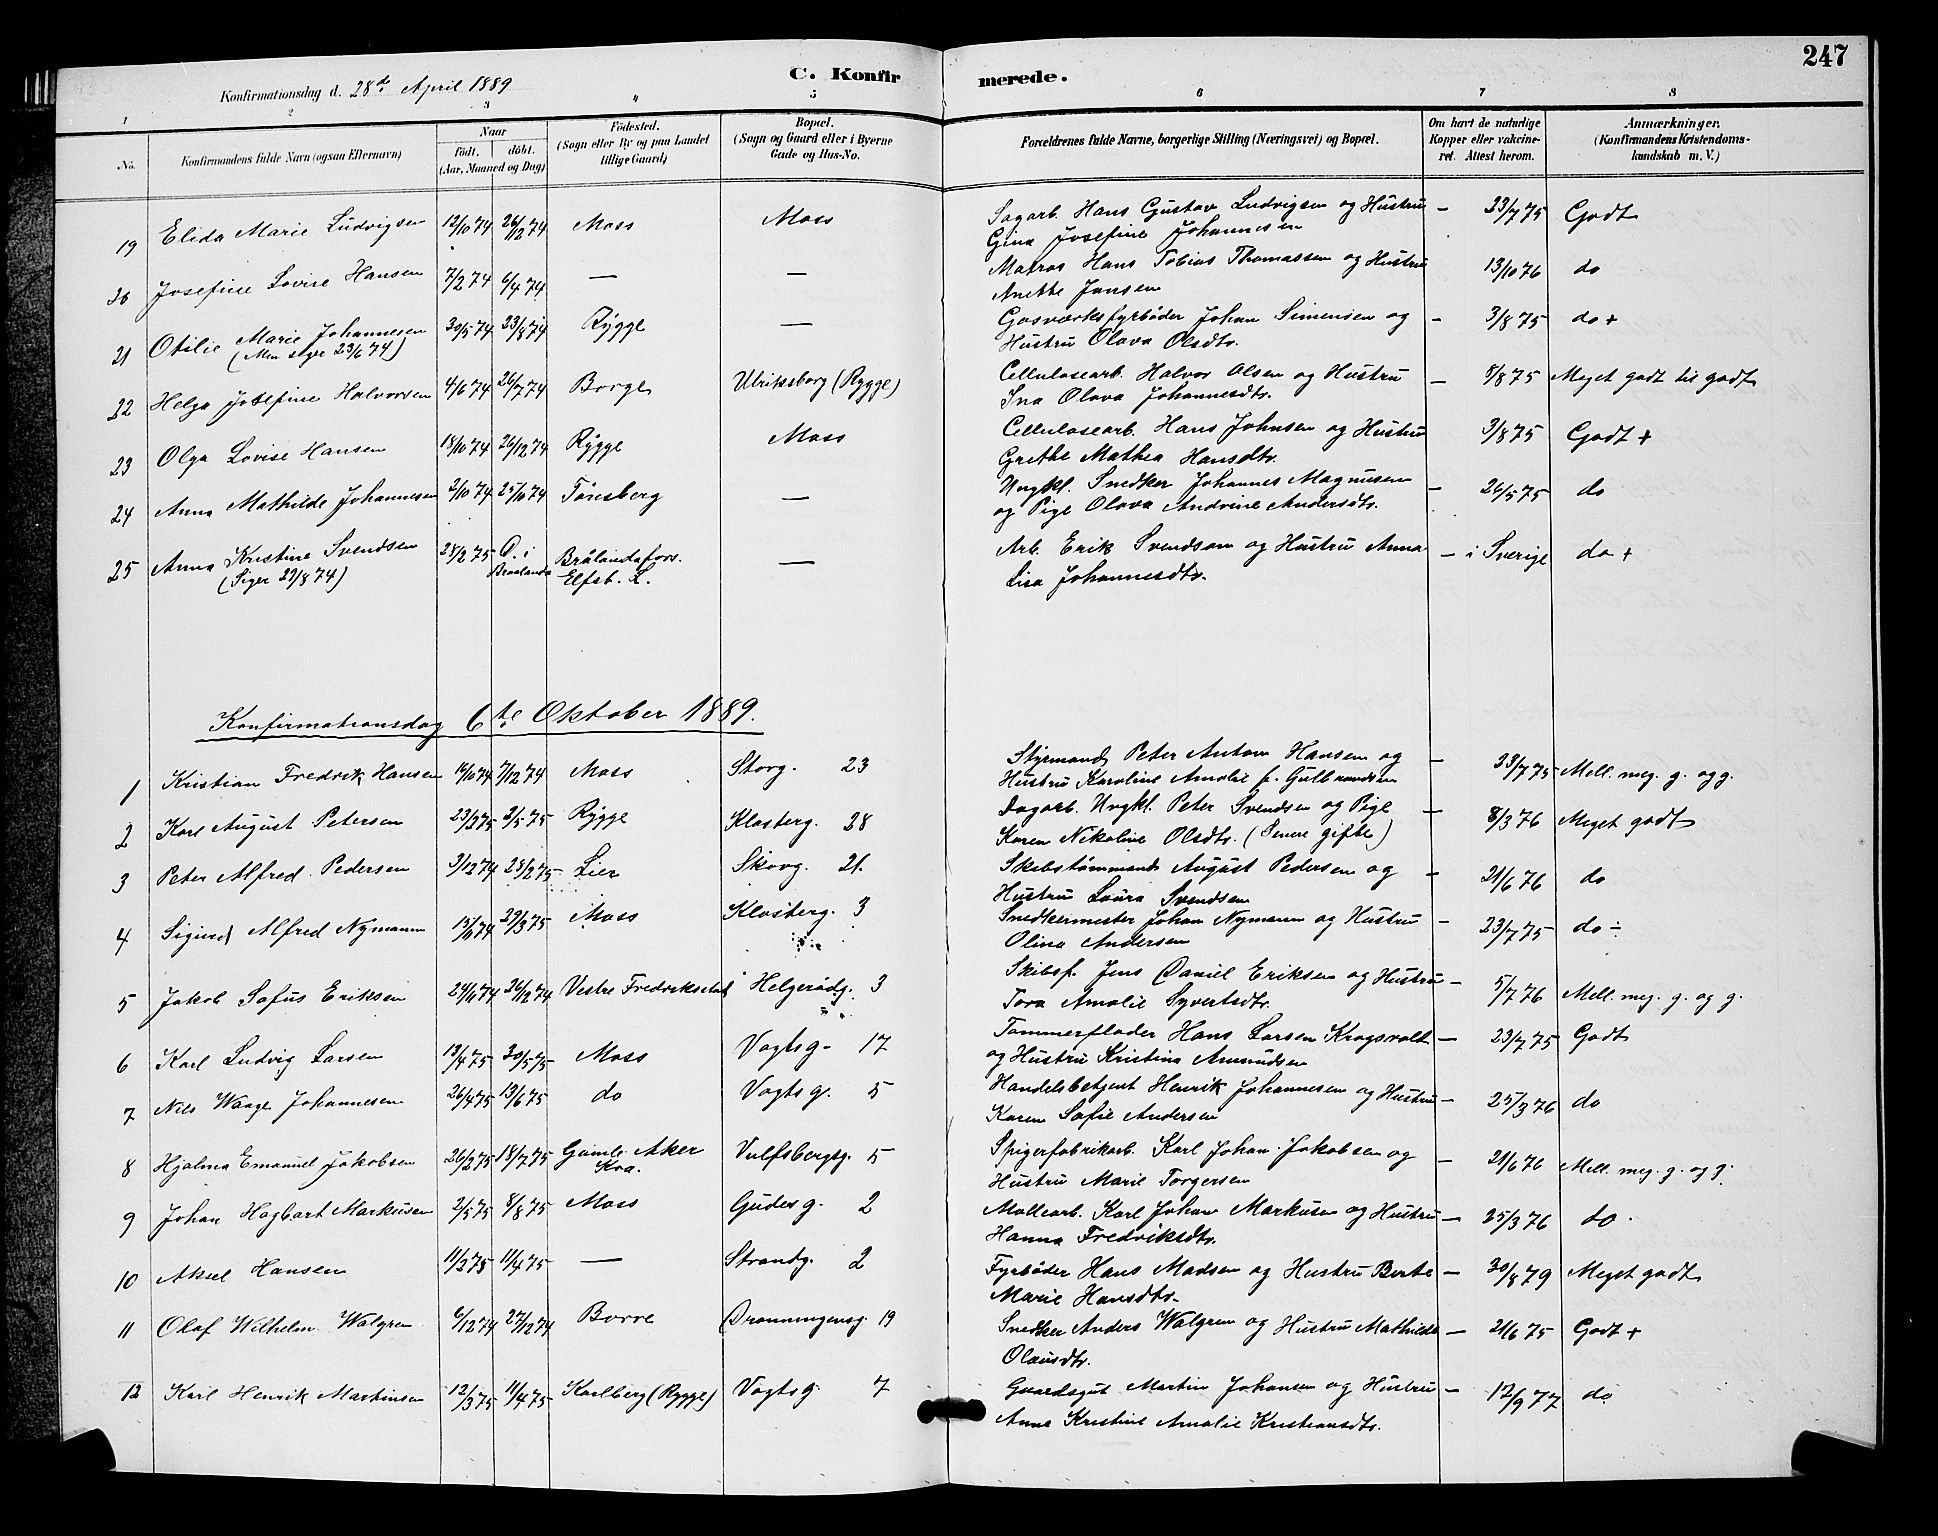 247
C. Konfirmerede.
Konfirmationsdag d. 28de April 1889
1 2 3 4 5 6 7 8
No. Konfirmandens fulde Navn (ogsaa Efternavn) Naar født. døbt. (Aar, Maaned og Dag) Fødested. (Sogn eller By og paa Landet tillige Gaard) Bopæl. (Sogn og Gaard eller i Byerne Gade og Hus-No. Forældrenes fulde Navne, borgerlige Stilling (Næringsvei) og Bopæl. Om havt de naturlige Kopper eller vakcineret. Attest herom. Anmærkninger. (Konfirmandens Kristendomskundskab m. V.)
19 Elida Marie Ludvigsen 12/10 74 26/12 74 Moss Moss Sagarb. Hans Gustav Ludvigsen og Hustru – 23/7 75 Godt
Gina Josefine Johannesen
20 Josefine Lovise Hansen 7/2 74 6/4 74 — — Matros Hans Tobias Thomassen og Hustru 13/10 76 do
Anette Jansen
21 Otilie Marie Johannesen 30/5 74 23/8 74 Rygge — Gasværksfyrbøder Johan Simensen og – 3/8 75 do +
(Men siger 23/6 74) Hustru Olava Olsdtr.
22 Helga Josefine Halvorsen 4/6 74 26/7 74 Borge Ulriksborg (Rygge) Cellulosearb. Halvor Olsen og Hustru – 8/8 75 Meget godt til godt
Ina Olava Johannesdtr.
23 Olga Lovise Hansen 18/10 74 26/12 74 Rygge Moss Cellulosearb. Hans Johnsen og Hustru 3/8 75 Godt +
Grethe Mathea Hansdtr.
24 Anna Mathilde Johannesen 2/10 74 25/10 74 Tønsberg — Ungkl. Snedker Johannes Magnusen – 26/5 75 do
og Pige Olava Andrine Andersdtr.
25 Anna Kristine Svendsen 28/2 75 D. i Braalanda Brålandafors. Elfsb. L. — Arb. Erik Svendson og Hustru Anna – i Sverige do +
(Siger 27/8 74) Lisa Johannesdtr.
Konfirmationsdag 6te Oktober 1889.
1 Kristian Fredrik Hansen 16/10 74 7/12 74 Moss Storg. 23 Styrmand Peter Anton Hansen og – 23/7 75 Mell. meg. g. og g.
Hustru Karoline Amalie f. Gulbrandsen
2 Karl August Petersen 23/2 75 2/5 75 Rygge Klosterg. 28 Dagarb. Ungkl. Peter Svendsen og Pige – 8/3 76 Meget godt
Karen Nikoline Olsdtr. (Senere gifte)
3 Peter Alfred Pedersen 3/12 74 28/2 75 Lier Skovg. 21. Skibstømmand August Pedersen og – 21/6 76 do
Hustru Laura Svendsen
4 Sigurd Alfred Nymann 15/11 74 29/3 75 Moss Klosterg. 3 Snedkermester Johan Nymann og Hustru – 23/7 75 do ÷
Olina Andersen
5 Jakob Sofus Eriksen 24/11 74 26/12 74 Vestre Fredrikstad Helgerødg. 3 Skibsf. Jens Daniel Eriksen og Hustru – 5/7 76 Mell. meg. g. og g.
Tora Amalie Syvertsdtr.
6 Karl Ludvig Larsen 13/4 75 30/5 75 Moss Vogtsg. 17 Tømmerflåder Hans Larsen Kragsvalt – 23/7 75 Godt
og Hustru Kristina Amundsen
7 Nils Waage Johannesen 26/4 75 13/6 75 do Vogtsg. 5 Handelsbetjent Henrik Johannesen og Hustru – 25/3 76 do
Karen Sofie Andersen
8 Hjalmar Emanuel Jakobsen 26/2 75 18/7 75 Gamle Aker Kra. Vulfsbergsg. 5 Spigerfabrikarb. Karl Johan Jakobsen og – 21/6 76 Mell. meg. g. og g.
Hustru Marie Torgersen
9 Johan Hagbart Markusen 2/5 75 8/8 75 Moss Gudesg. 2 Møllearb. Karl Johan Markusen og Hustru – 25/3 76 do.
Hanna Fredriksdtr.
10 Aksel Hansen 11/2 75 11/4 75 — Strandg. 2 Fyrbøder Hans Madsen og Hustru Berte – 30/8 79 Meget godt
Marie Hansdtr.
11 Olaf Wilhelm Walgren 6/12 74 27/12 74 Borre Dronningensg. 19 Snedker Anders Walgren og Hustru Mathilde – 21/6 75 Godt +
Olausdtr.
12 Karl Henrik Martinsen 12/3 75 11/4 75 Karlberg (Rygge) Vogtsg. 7 Gaardsgut Martin Johansen og Hustru – 12/9 77 do.
Anna Kristine Amalie Kristiansdtr.